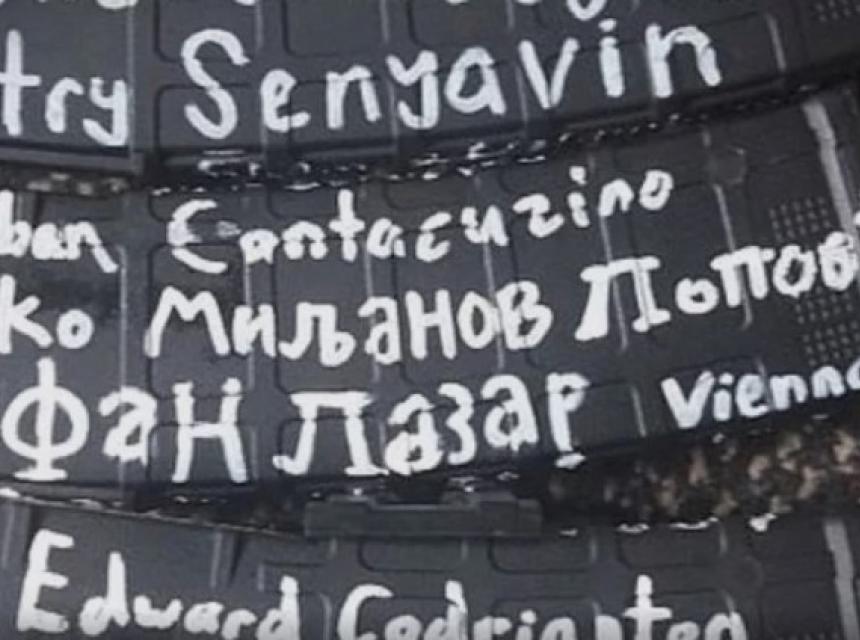 try Senyavin
ban Cantacuzino
ко Миљанов Попов
фан Лазар Vienna
Edward Codrington